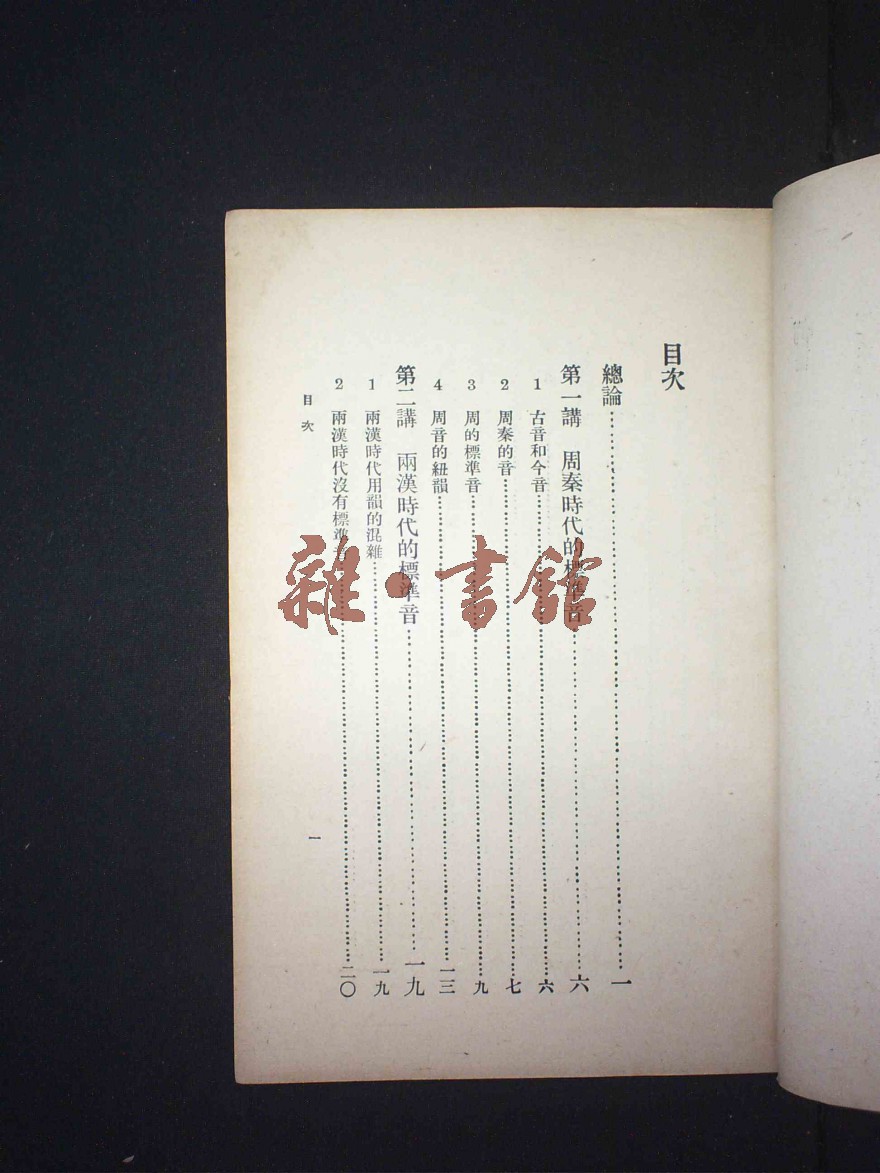 目次
總論……一
第一講 周秦時代的標準音……六
1 古音和今音……六
2 周秦的音……七
3 周的標準音……九
4 周音的紐韻……一三
第二講 兩漢時代的標準音……一九
1 兩漢時代用韻的混雜……一九
2 兩漢時代沒有標準音……二〇
目次
一
雜·書館